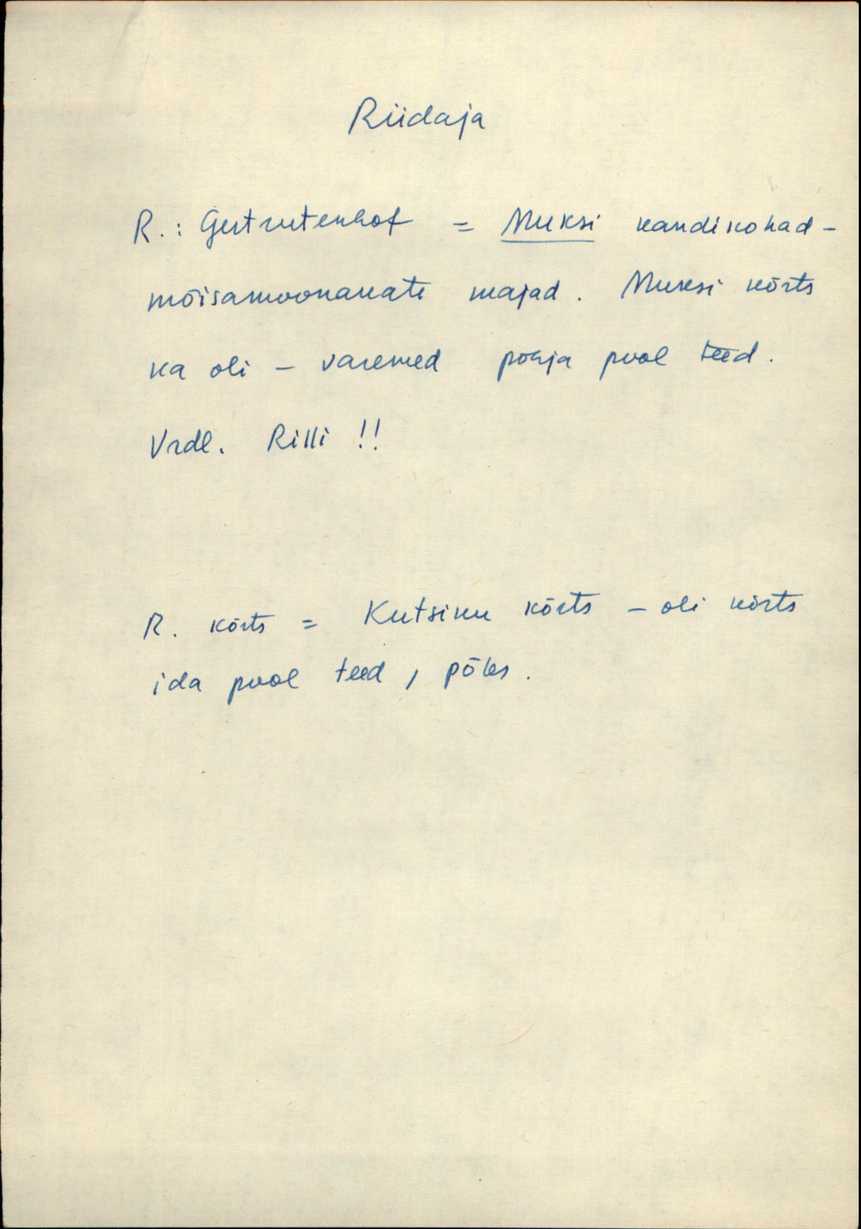 Riidaja
R.: Gertrutenhof = Muksi kandikohad -
mõisamoonakate majad. Muksi kõrts
ka oli – varemed põhja pool teed.
Vrdl. Rilli !!
R. kõrts = Kutsiku kõrts – oli kõrts
ida pool teed, põles.